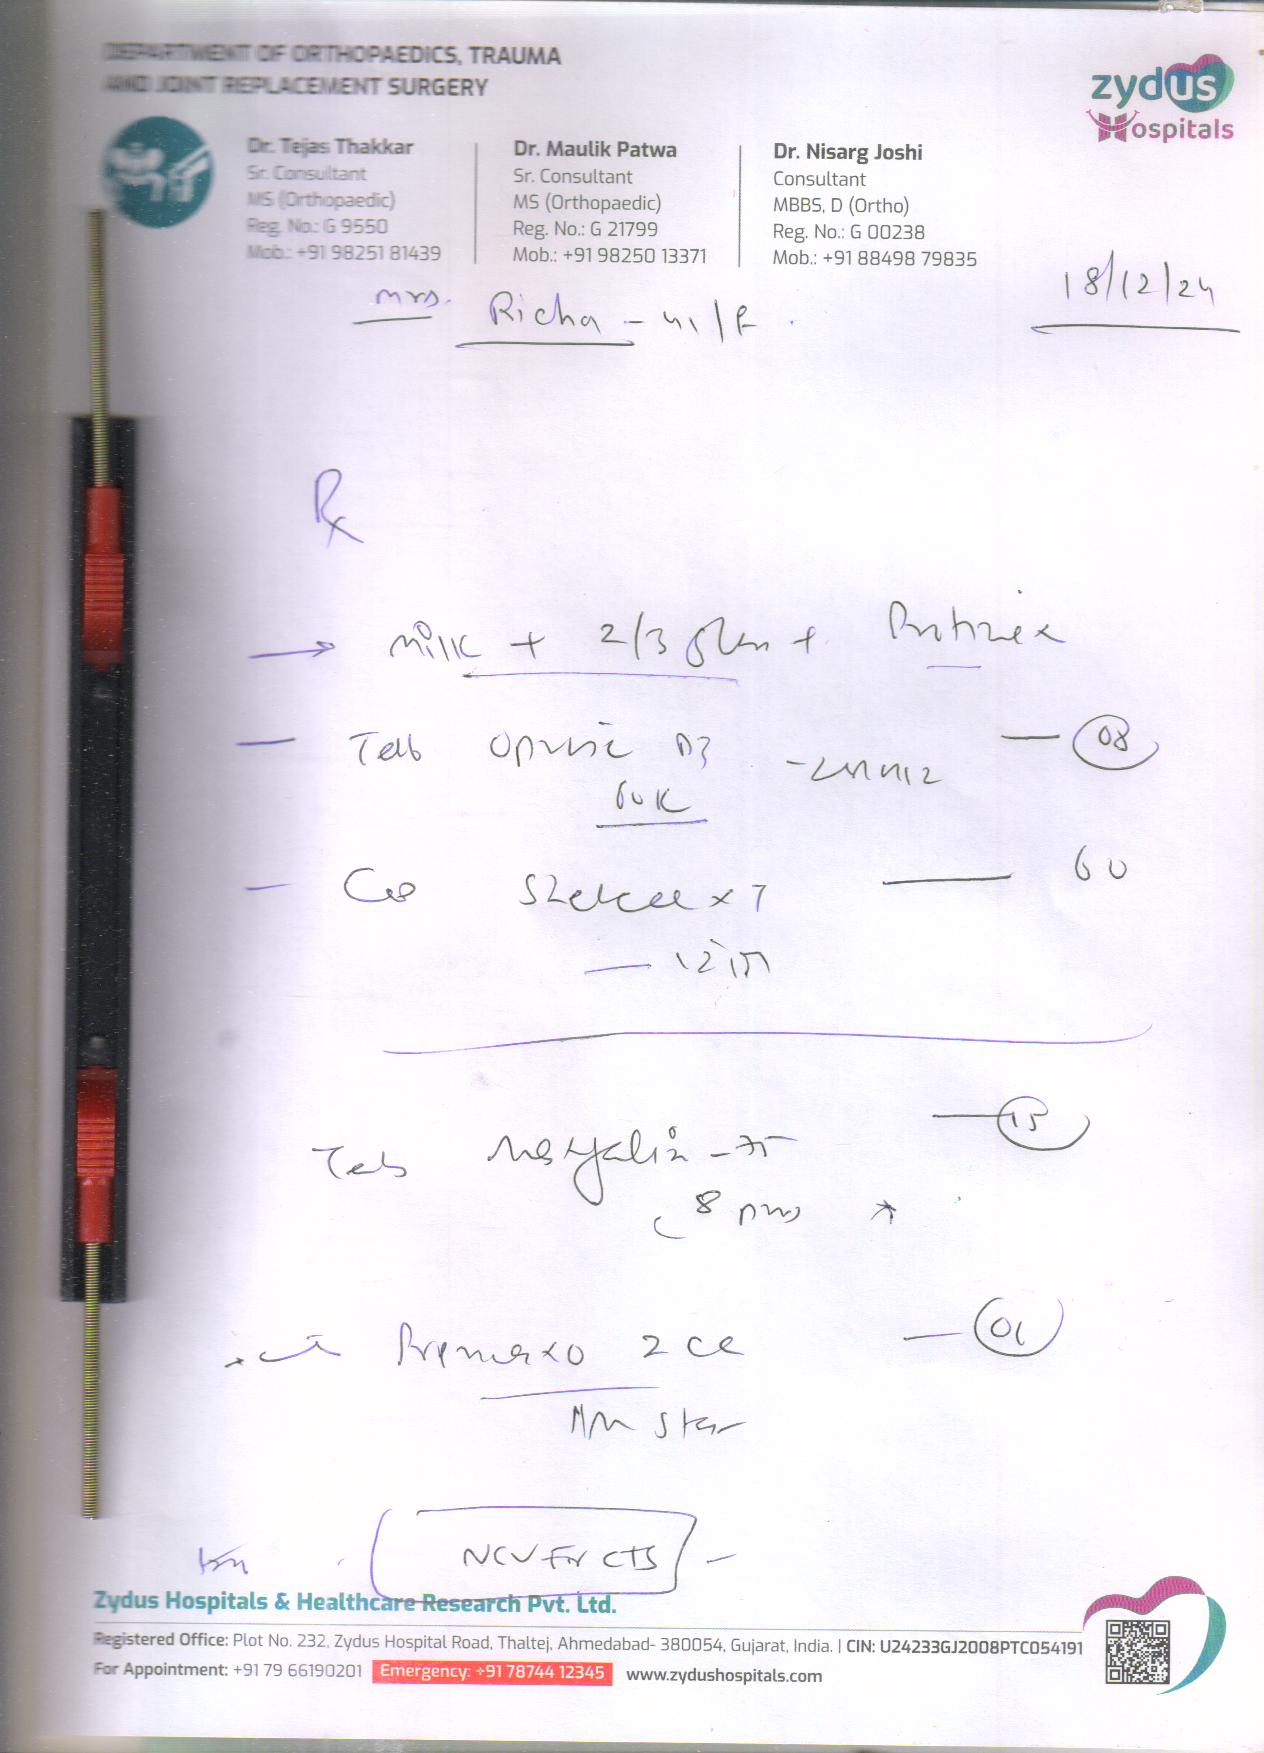 DEPARTMENT OF ORTHOPAEDICS, TRAUMA
AND JOINT REPLACEMENT SURGERY
zydus
Hospitals
Dr. Tejas Thakkar
Sr. Consultant
MS (Orthopaedic)
Reg. No.: G 9550
Mob.: +91 98251 81439
Dr. Maulik Patwa
Sr. Consultant
MS (Orthopaedic)
Reg. No.: G 21799
Mob.: +91 98250 13371
Dr. Nisarg Joshi
Consultant
MBBS, D (Ortho)
Reg. No.: G 00238
Mob.: +91 88498 79835
18/12/24
Mrs. Richa
Rx
milk + 2/3 +
Tab D3 08
60K
60
Tab 15
2 cc 01
NCV For CTS
Zydus Hospitals & Healthcare Research Pvt. Ltd.
Registered Office: Plot No. 232, Zydus Hospital Road, Thaltej, Ahmedabad- 380054, Gujarat, India. | CIN: U24233GJ2008PTC054191
For Appointment: +91 79 66190201 Emergency: +91 78744 12345 www.zydushospitals.com